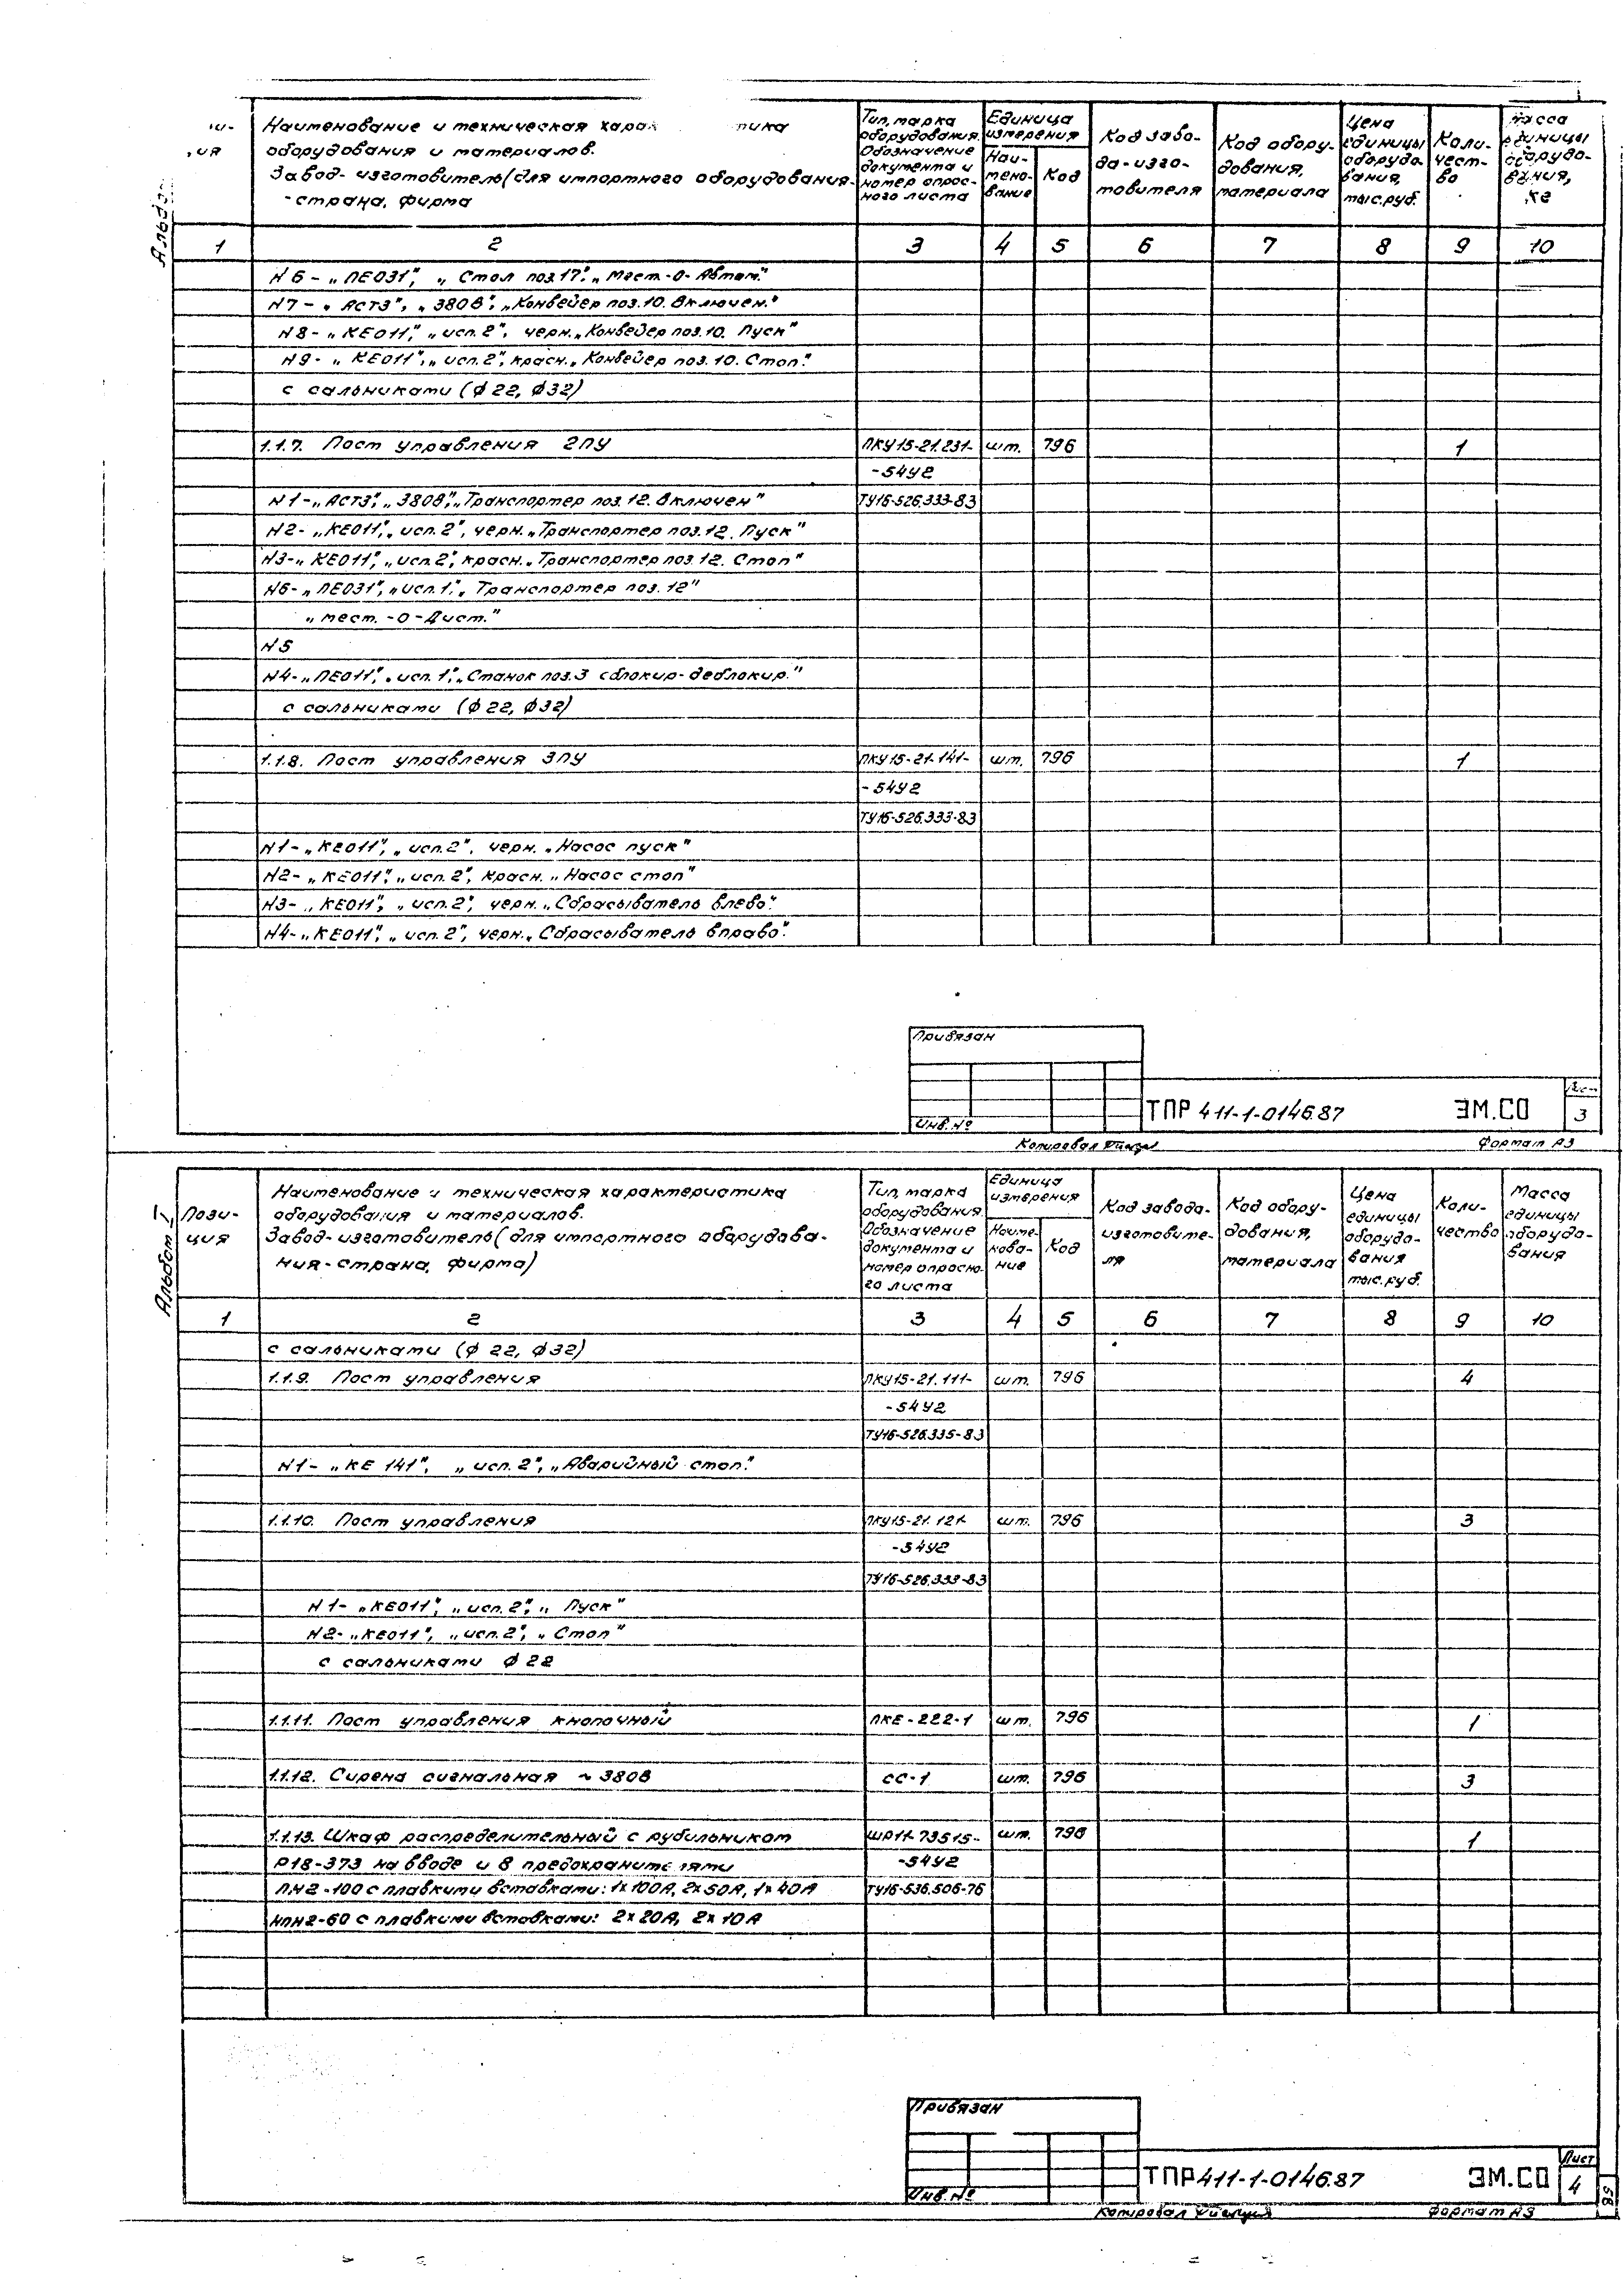 Наименование и техническая харак тика
оборудования и материалов.
Завод-изготовитель (для импортного оборудования-
-страна, фирма
Тип, марка
оборудования.
Обозначение
документа и
номер опрос-
ного листа
Единица
измерения
Наи-
мено-
вание
Код
Код заво-
да-изго-
товителя
Код обору-
дования,
материала
Цена
единицы
оборудо-
вания,
тыс.руб.
Коли-
чест-
во
Масса
единицы
оборудо-
вания,
кг
1 2 3 4 5 6 7 8 9 10
N6 - „ПЕ031", „Стол поз.17". „Мест.-0-Автом."
N7 - „АСТ3", „380В", „Конвейер поз.10. Включен."
N8 - „КЕ011", „исп.2", черн. „Конвейер поз.10. Пуск"
N9 - „КЕ011", „исп.2", красн. „Конвейер поз.10. Стоп".
с сальниками (ϕ22, ϕ32)
1.1.7. Пост управления 2ПУ ПКУ15-21.231- шт. 796 1
-54У2
N1-„АСТ3", „380В", „Транспортер поз.12. Включен" ТУ16-526.333-83
N2- „КЕ011", „исп.2", черн. „Транспортер поз.12. Пуск"
N3-„КЕ011", „исп.2", красн. „Транспортер поз.12. Стоп"
N6-„ПЕ031", „исп.1", „Транспортер поз.12"
„мест.-0-Дист."
N5
N4-„ПЕ011", „исп.1", „Станок поз.3 сблокир-деблокир."
с сальниками (ϕ22, ϕ32)
1.1.8. Пост управления 3ПУ ПКУ15-21.141- шт. 796 1
-54У2
ТУ16-526.333-83
N1-„КЕ011", „исп.2", черн. „Насос пуск"
N2-„КЕ011", „исп.2", красн. „Насос стоп"
N3-„КЕ011", „исп.2", черн. „Сбрасыватель влево".
N4-„КЕ011", „исп.2", черн. „Сбрасыватель вправо".
Привязан
Инв.№
ТПР 411-1-0146.87 ЭМ.СО 3
Копировал
Формат А3
Альбом
Пози-
ция
Наименование и техническая характеристика
оборудования и материалов.
Завод-изготовитель (для импортного оборудова-
ния-страна, фирма)
Тип, марка
оборудования.
Обозначение
документа и
номер опросно-
го листа
Единица
измерения
Наиме-
нова-
ние
Код
Код завода-
изготовите-
ля
Код обору-
дования,
материала
Цена
единицы
оборудо-
вания
тыс.руб.
Коли-
чество
Масса
единицы
оборудо-
вания
1 2 3 4 5 6 7 8 9 10
с сальниками (ϕ22, ϕ32)
1.1.9. Пост управления ПКУ15-21.111- шт. 796 4
-54У2
ТУ16-526.335-83
N1- „КЕ 141", „исп.2", „Аварийный стоп".
1.1.10. Пост управления ПКУ15-21.121- шт. 796 3
-54У2
ТУ16-526.333-83
N1- „КЕ011", „исп.2", „Пуск"
N2- „КЕ011", „исп.2", „Стоп"
с сальниками ϕ22
1.1.11. Пост управления кнопочный ПКЕ-222-1 шт. 796 1
1.1.12. Сирена сигнальная ~380В СС-1 шт. 796 3
1.1.13. Шкаф распределительный с рубильником ШР11-73515- шт. 796 1
Р18-373 на вводе и 8 предохранителями -54У2
ПН2-100 с плавкими вставками: 1х100А, 2х50А, 1х40А ТУ16-536.506-76
НПН2-60 с плавкими вставками: 2х20А, 2х10А
Привязан
Инв.№
ТПР 411-1-0146.87 ЭМ.СО Лист
4
Копировал
Формат А3